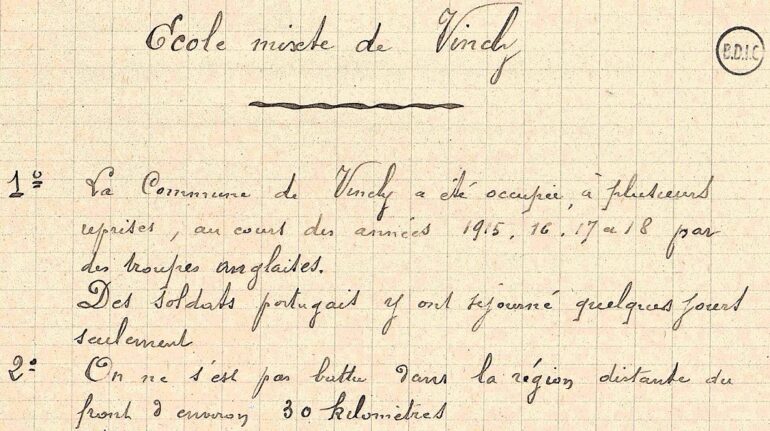 Ecole mixte de Vincly
B.D.I.C
1º La Commune de Vincly a été occupée, à plusieurs
reprises, au cours des années 1915, 16, 17 à 18 par
des troupes anglaises.
Des soldats portugais y ont séjourné quelques jours
seulement
2º On ne s'est pas battu dans la région distante du
front d'environ 30 kilomètres